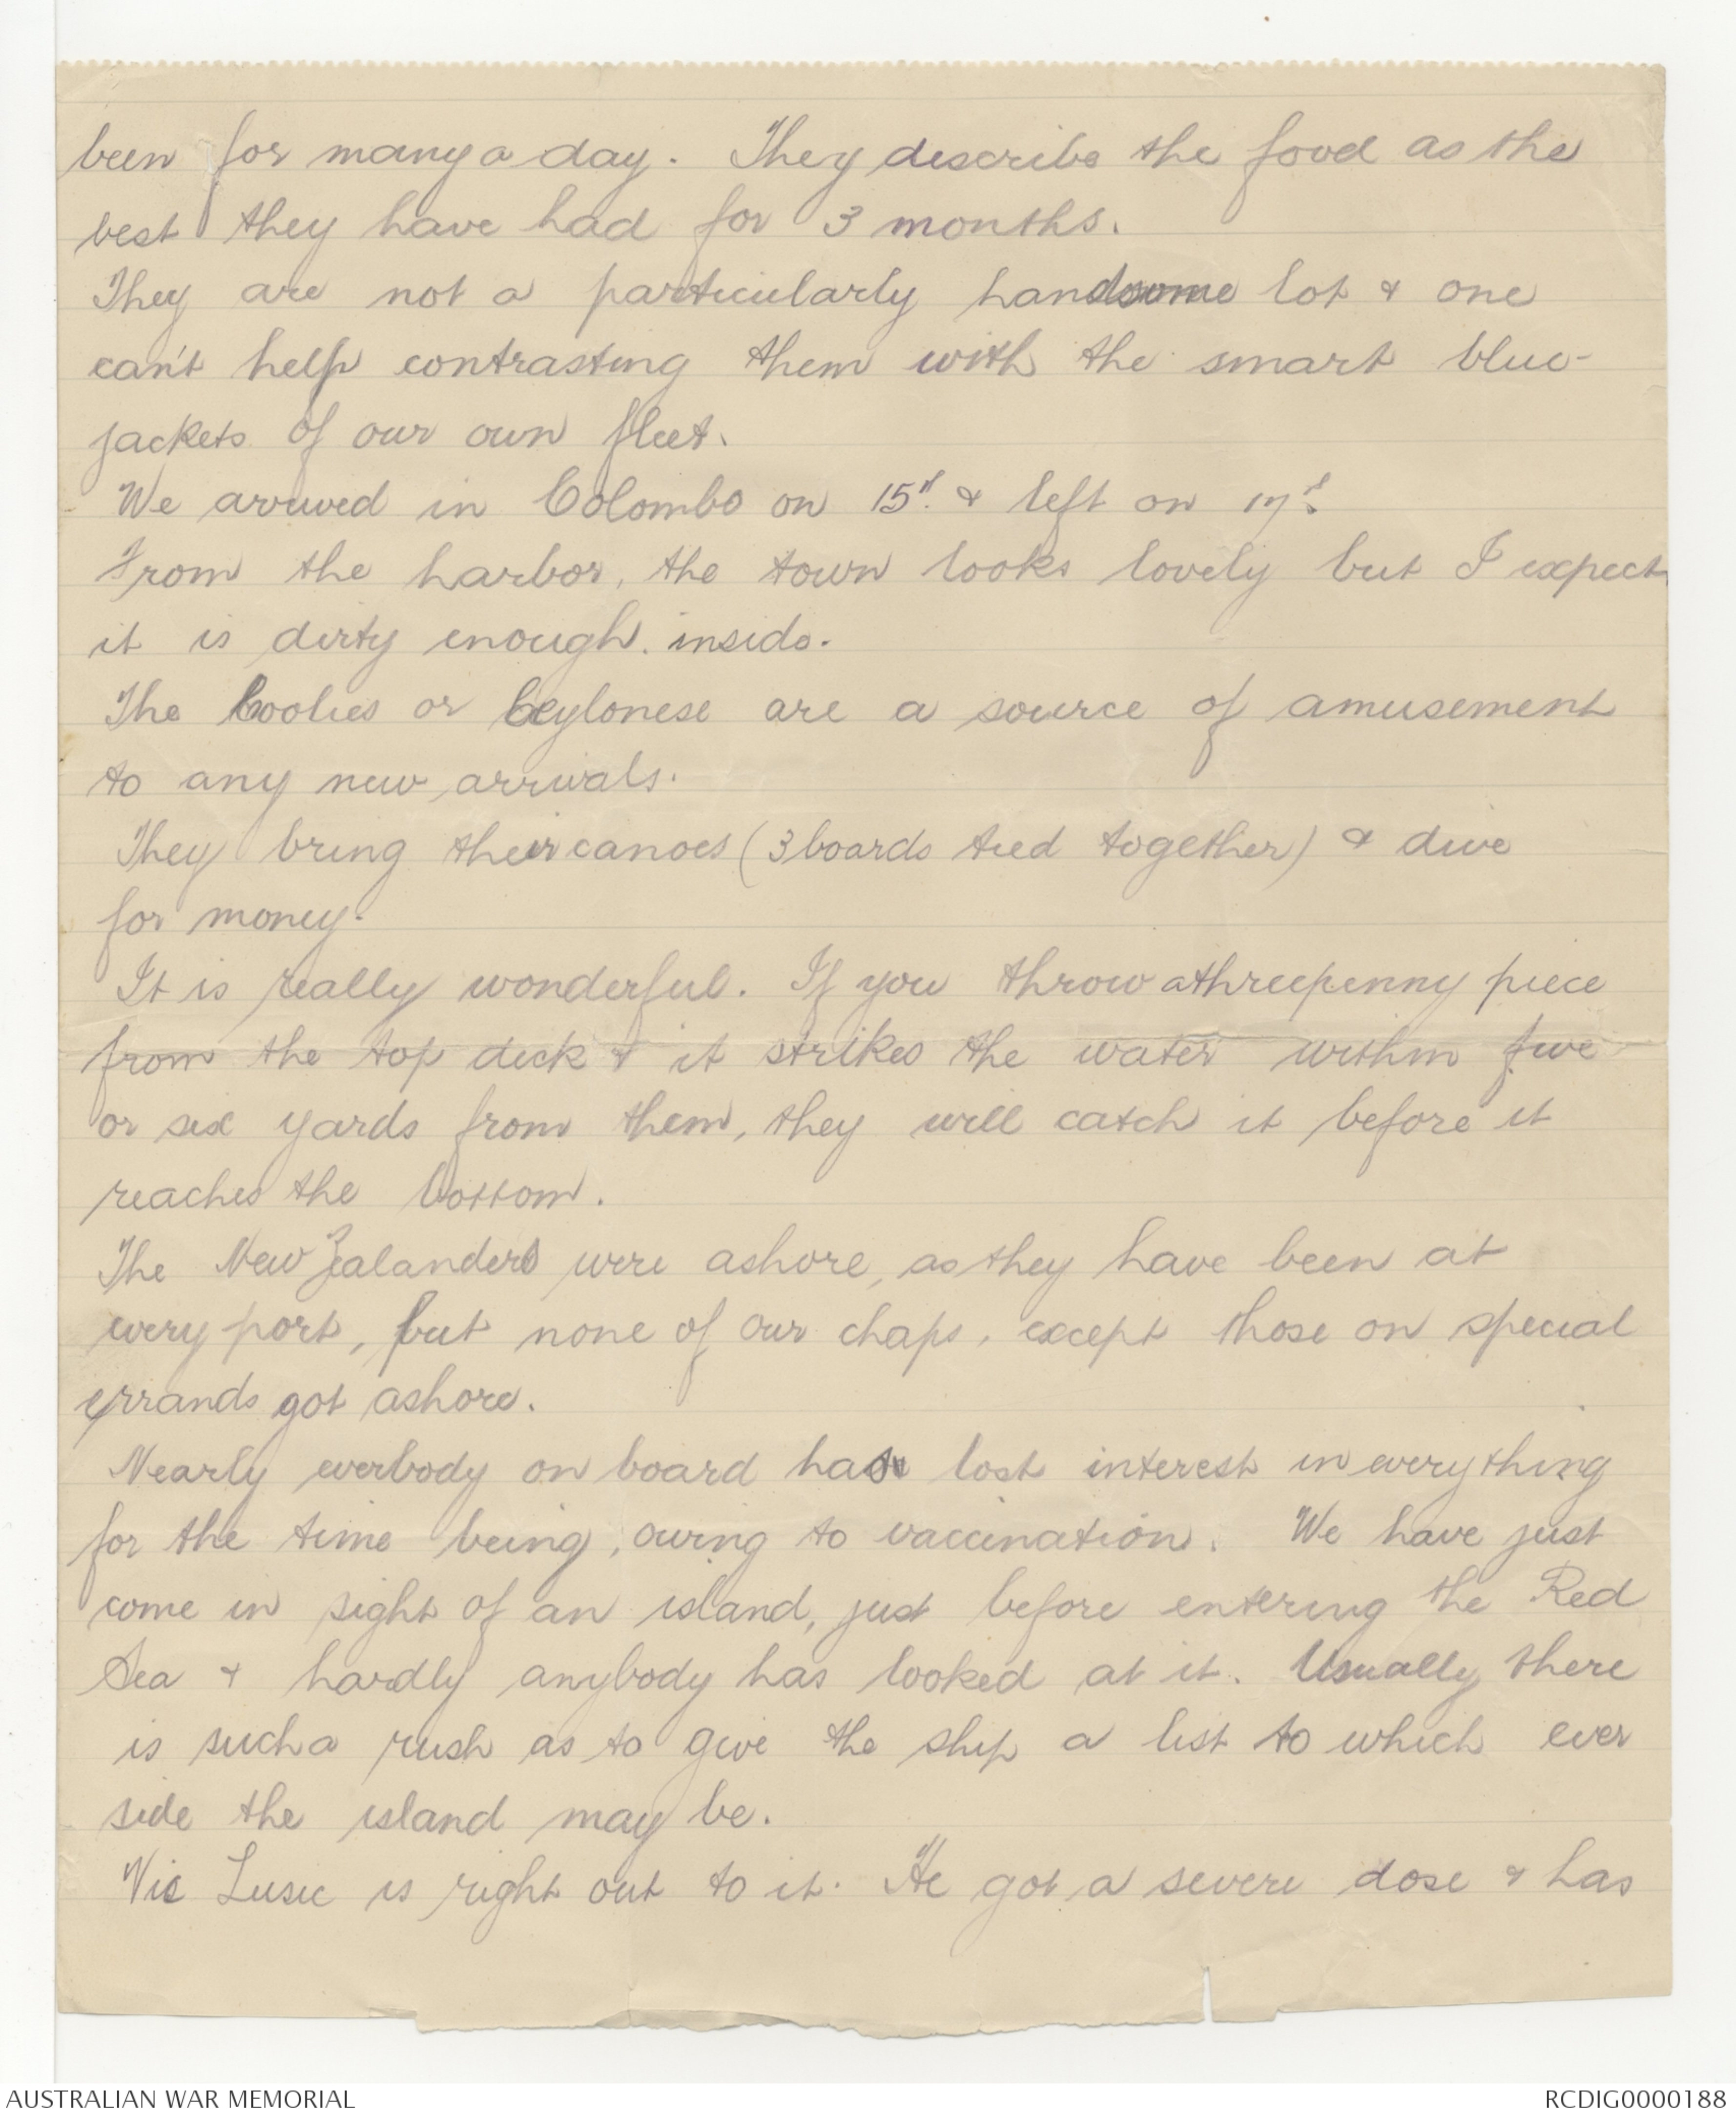 been for many a day. They describe the food as the
best they have had for 3 months.
They are not a particularly handsome lot & one
can't help contrasting them with the smart blue-
jackets of our own fleet.
We arrived in Colombo on 15th. & left on 17th.
From the harbor, the town looks lovely but I expect
it is dirty enough. inside.
The Coolies or Ceylonese are a source of amusement
to any new arrivals.
They bring their canoes (3 boards tied together) & dive
for money.
It is really wonderful. If you throw a threepenny piece
from the top deck & it strikes the water within five
or six yards from them, they will catch it before it
reaches the bottom.
The New Zealanders were ashore, as they have been at
every port, but none of our chaps, except those on special
errands got ashore.
Nearly everbody on board has lost interest in everything
for the time being, owing to vaccination. We have just
come in sight of an island, just before entering the Red
Sea & hardly anybody has looked at it. Usually there
is such a rush as to give the ship a list to which ever
side the island may be.
Vic Lusic is right out to it. He got a severe dose & has
AUSTRALIAN WAR MEMORIAL
RCDIG0000188